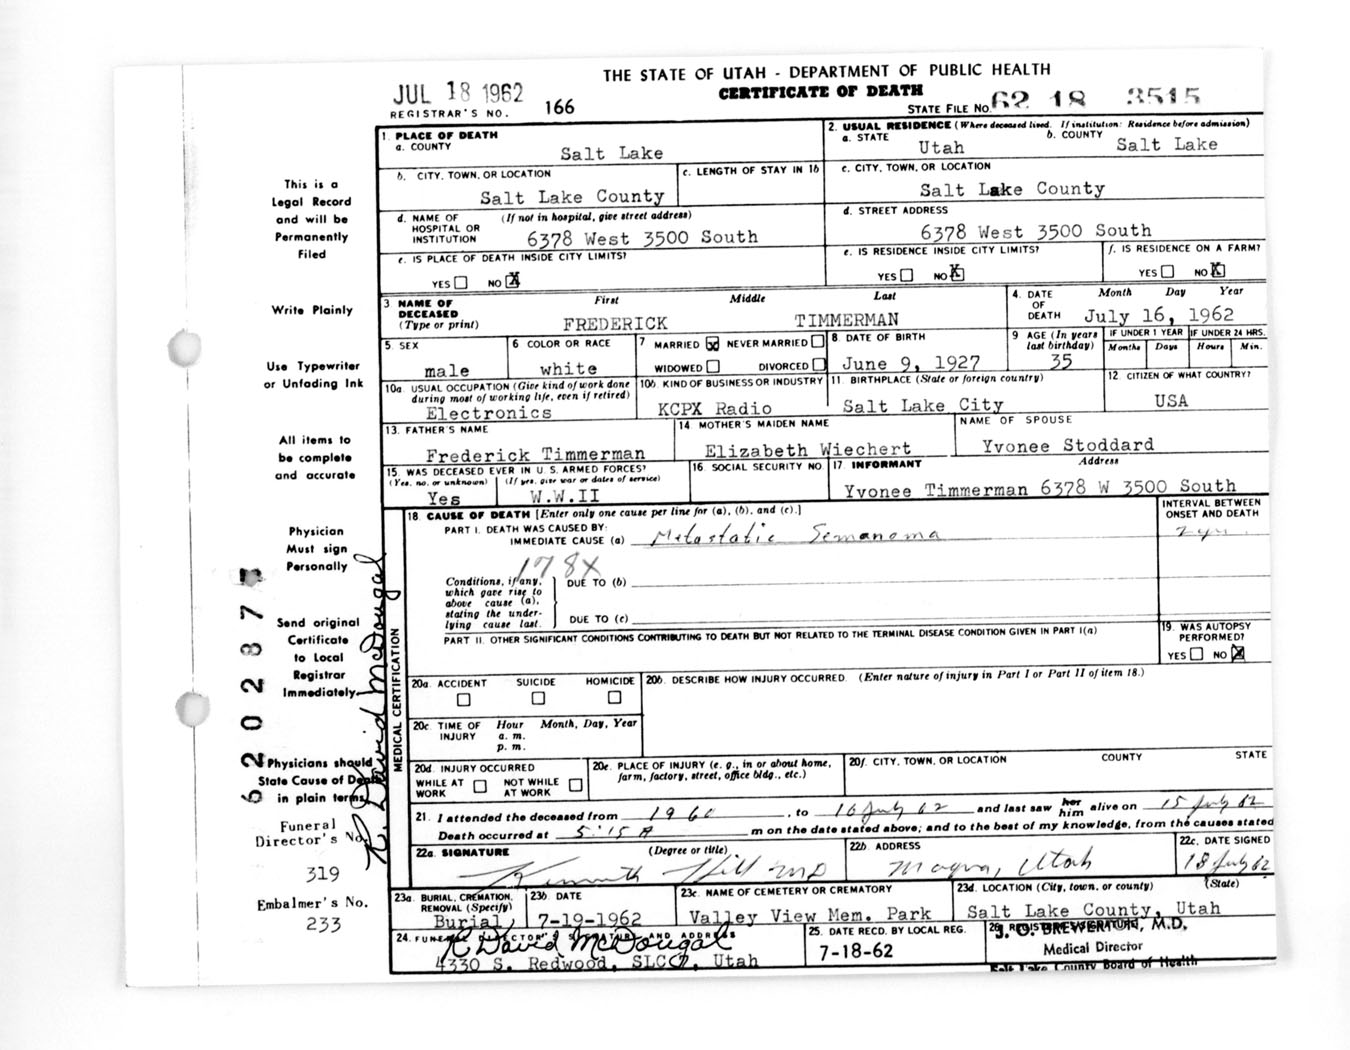 THE STATE OF UTAH - DEPARTMENT OF PUBLIC HEALTH
CERTIFICATE OF DEATH
JUL 18 1962
REGISTRAR'S NO. 166
STATE FILE NO. 62 18 3515
This is a
Legal Record
and will be
Permanently
Filed
Write Plainly
Use Typewriter
or Unfading Ink
All items to
be complete
and accurate
Physician
Must sign
Personally
Send original
Certificate
to Local
Registrar
Immediately
Physicians should
State Cause of Death
in plain terms
Funeral
Director's No.
319
Embalmer's No.
233
R. David McDougal
1. PLACE OF DEATH
a. COUNTY
Salt Lake
2. USUAL RESIDENCE (Where deceased lived. If institution: Residence before admission)
a. STATE Utah
b. COUNTY Salt Lake
b. CITY, TOWN, OR LOCATION
Salt Lake County
c. LENGTH OF STAY IN 1b
c. CITY, TOWN, OR LOCATION
Salt Lake County
d. NAME OF HOSPITAL OR INSTITUTION (If not in hospital, give street address)
6378 West 3500 South
d. STREET ADDRESS
6378 West 3500 South
e. IS PLACE OF DEATH INSIDE CITY LIMITS?
YES NO X
e. IS RESIDENCE INSIDE CITY LIMITS?
YES NO X
f. IS RESIDENCE ON A FARM?
YES NO X
3. NAME OF DECEASED (Type or print)
First Middle Last
FREDERICK TIMMERMAN
4. DATE OF DEATH
Month Day Year
July 16, 1962
5. SEX
male
6 COLOR OR RACE
white
7 MARRIED X NEVER MARRIED
WIDOWED DIVORCED
8. DATE OF BIRTH
June 9, 1927
9 AGE (In years last birthday)
35
IF UNDER 1 YEAR
Months Days
IF UNDER 24 HRS.
Hours Min.
10a. USUAL OCCUPATION (Give kind of work done during most of working life, even if retired)
Electronics
10b. KIND OF BUSINESS OR INDUSTRY
KCPX Radio
11. BIRTHPLACE (State or foreign country)
Salt Lake City
12. CITIZEN OF WHAT COUNTRY?
USA
13. FATHER'S NAME
Frederick Timmerman
14 MOTHER'S MAIDEN NAME
Elizabeth Wiechert
NAME OF SPOUSE
Yvonee Stoddard
15. WAS DECEASED EVER IN U. S. ARMED FORCES?
(Yes, no, or unknown) (If yes, give war or dates of service)
Yes W.W.II
16. SOCIAL SECURITY NO.
17. INFORMANT Address
Yvonee Timmerman 6378 W 3500 South
MEDICAL CERTIFICATION
18. CAUSE OF DEATH [Enter only one cause per line for (a), (b), and (c).]
INTERVAL BETWEEN ONSET AND DEATH
PART I. DEATH WAS CAUSED BY:
IMMEDIATE CAUSE (a) Metastatic Semanoma
178X
Conditions, if any, which gave rise to above cause (a), stating the underlying cause last.
DUE TO (b)
DUE TO (c)
PART II. OTHER SIGNIFICANT CONDITIONS CONTRIBUTING TO DEATH BUT NOT RELATED TO THE TERMINAL DISEASE CONDITION GIVEN IN PART I(a)
19. WAS AUTOPSY PERFORMED?
YES NO X
20a. ACCIDENT SUICIDE HOMICIDE
20b. DESCRIBE HOW INJURY OCCURRED. (Enter nature of injury in Part I or Part II of item 18.)
20c. TIME OF INJURY
Hour Month, Day, Year
a. m.
p. m.
20d. INJURY OCCURRED
WHILE AT WORK NOT WHILE AT WORK
20e. PLACE OF INJURY (e. g., in or about home, farm, factory, street, office bldg., etc.)
20f. CITY, TOWN, OR LOCATION COUNTY STATE
21. I attended the deceased from 1960, to 16 July 62 and last saw her him alive on 15 July 62
Death occurred at 5:15 A m on the date stated above; and to the best of my knowledge, from the causes stated
22a. SIGNATURE (Degree or title)
Kenneth Hill MD
22b. ADDRESS
Magna, Utah
22c. DATE SIGNED
18 July 62
23a. BURIAL, CREMATION, REMOVAL (Specify)
Burial
23b. DATE
7-19-1962
23c. NAME OF CEMETERY OR CREMATORY
Valley View Mem. Park
23d. LOCATION (City, town, or county) (State)
Salt Lake County, Utah
24. FUNERAL DIRECTOR'S SIGNATURE AND ADDRESS
R David McDougal
4330 S. Redwood, SLC 7, Utah
25. DATE RECD. BY LOCAL REG.
7-18-62
26. REGISTRAR'S SIGNATURE
J. O. BREWERTON, M.D.
Medical Director
Salt Lake County Board of Health